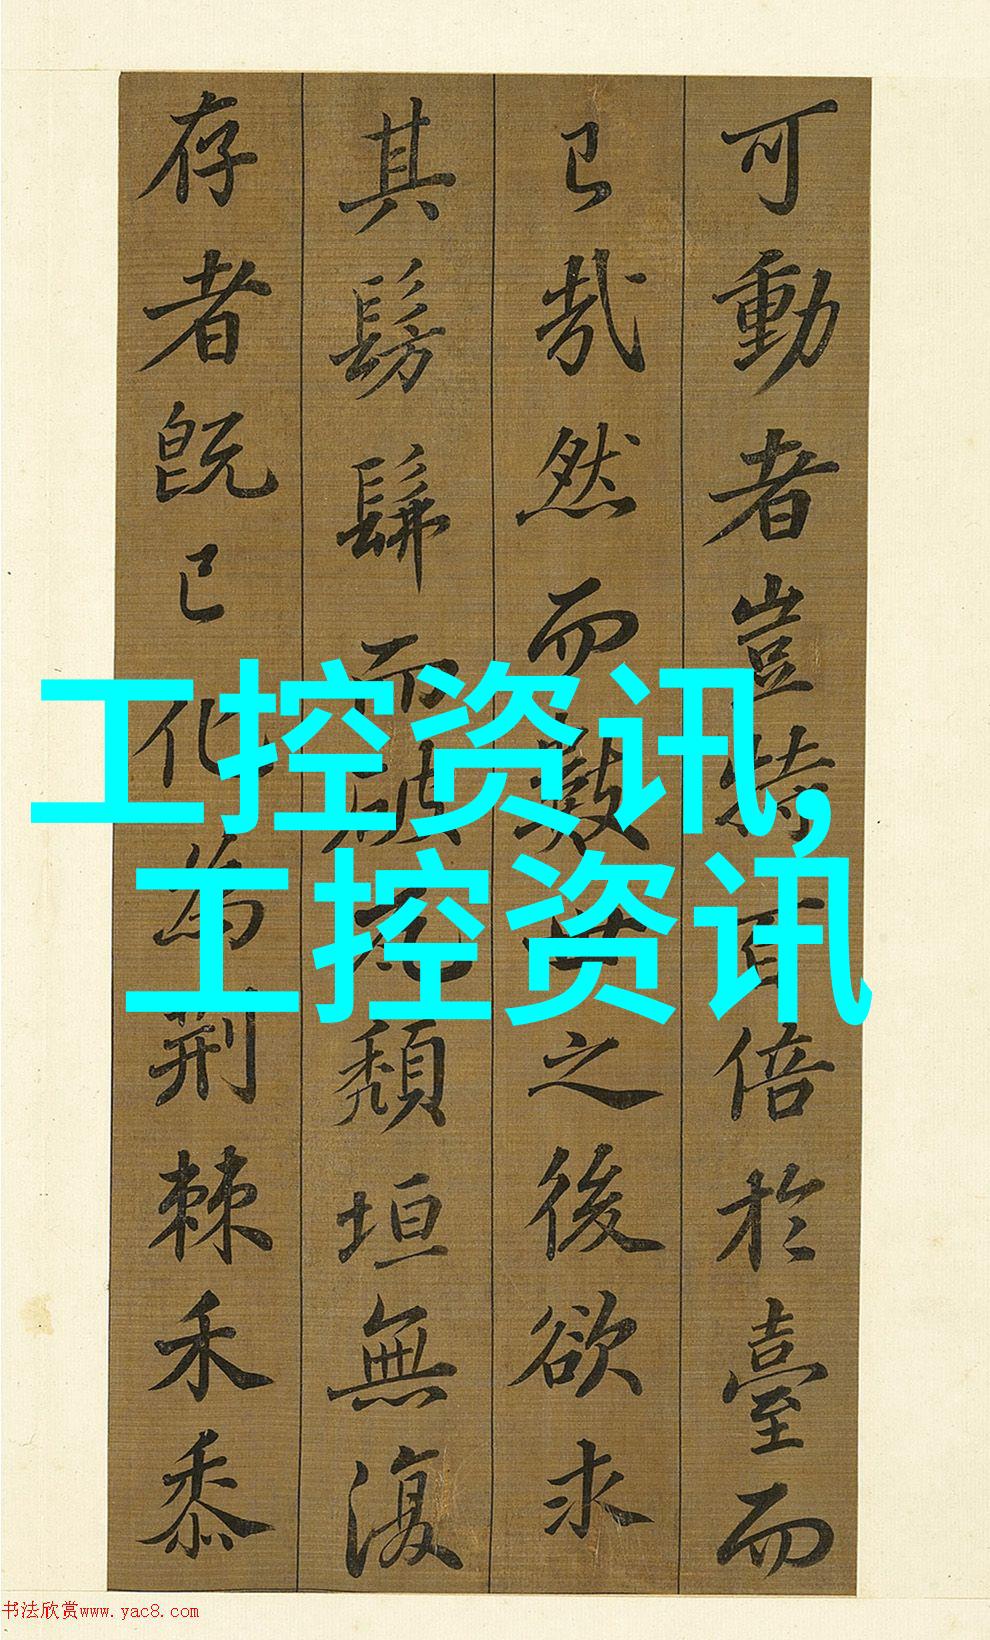 可動者豈特百倍於臺而
已哉然而數世之後欲求
其髣髴而破瓦頹垣無復
存者既已化為荊棘禾黍
工控资讯,
工控资讯
书法欣赏www.yac8.com